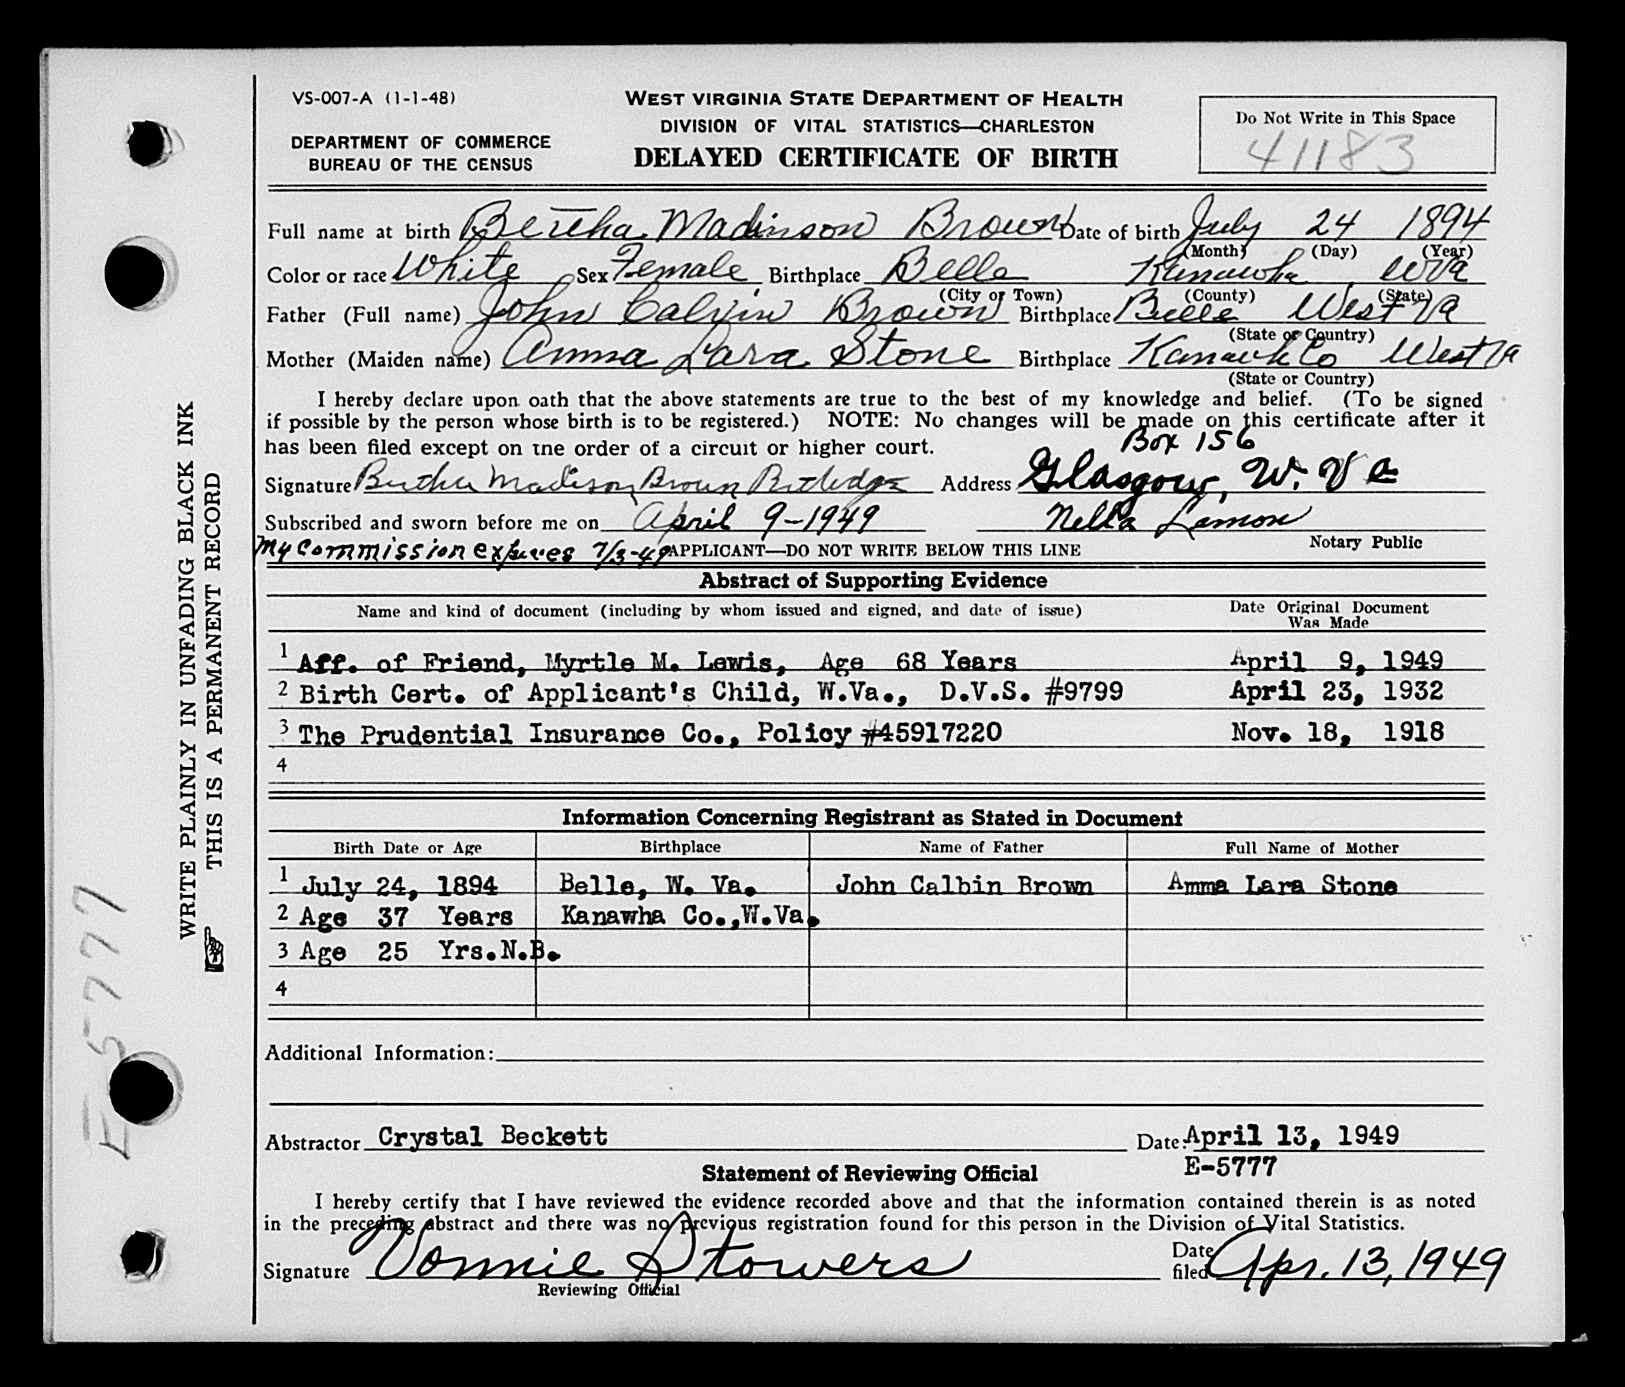 VS-007-A (1-1-48)
DEPARTMENT OF COMMERCE
BUREAU OF THE CENSUS
WEST VIRGINIA STATE DEPARTMENT OF HEALTH
DIVISION OF VITAL STATISTICS—CHARLESTON
DELAYED CERTIFICATE OF BIRTH
Do Not Write in This Space
41183
Full name at birth Bertha Madinson Brown Date of birth July 24 1894
(Month) (Day) (Year)
Color or race White Sex Female Birthplace Belle Kanawha WVa
(City or Town) (County) (State)
Father (Full name) John Calvin Brown Birthplace Belle West Va
(State or Country)
Mother (Maiden name) Amma Lara Stone Birthplace Kanawh Co West Va
(State or Country)
I hereby declare upon oath that the above statements are true to the best of my knowledge and belief. (To be signed
if possible by the person whose birth is to be registered.) NOTE: No changes will be made on this certificate after it
has been filed except on the order of a circuit or higher court.
Box 156
Signature Bertha Madison Brown Rutledge Address Glasgow, W. Va
Subscribed and sworn before me on April 9-1949 Nella Lemon
Notary Public
My Commission expires 7/3-49 APPLICANT—DO NOT WRITE BELOW THIS LINE
Abstract of Supporting Evidence
Name and kind of document (including by whom issued and signed, and date of issue) Date Original Document
Was Made
1 Aff. of Friend, Myrtle M. Lewis, Age 68 Years April 9, 1949
2 Birth Cert. of Applicant's Child, W.Va., D.V.S. #9799 April 23, 1932
3 The Prudential Insurance Co., Policy #45917220 Nov. 18, 1918
4
Information Concerning Registrant as Stated in Document
Birth Date or Age Birthplace Name of Father Full Name of Mother
1 July 24, 1894 Belle, W. Va. John Calbin Brown Amma Lara Stone
2 Age 37 Years Kanawha Co.,W.Va.
3 Age 25 Yrs.N.B.
4
Additional Information:
Abstractor Crystal Beckett Date: April 13, 1949
E-5777
Statement of Reviewing Official
I hereby certify that I have reviewed the evidence recorded above and that the information contained therein is as noted
in the preceding abstract and there was no previous registration found for this person in the Division of Vital Statistics.
Signature Vonnie Stowers Date
filed Apr. 13, 1949
Reviewing Official
WRITE PLAINLY IN UNFADING BLACK INK
THIS IS A PERMANENT RECORD
E5777